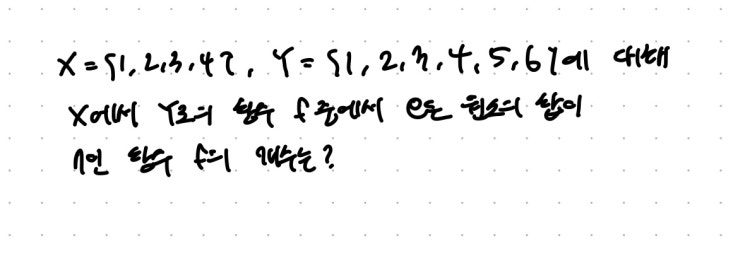 X = {1, 2, 3, 4}, Y = {1, 2, 3, 4, 5, 6}에 대해
X에서 Y로의 함수 f 중에서 모든 원소의 합이
7인 함수 f의 개수는?